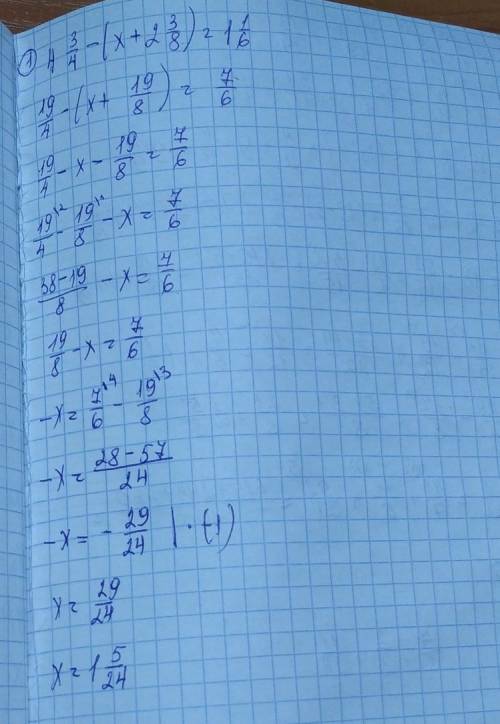 ① 4 3/4 - (x + 2 3/8) = 1 1/6
19/4 - (x + 19/8) = 7/6
19/4 - x - 19/8 = 7/6
19\2/4 - 19\1/8 - x = 7/6
38-19/8 - x = 7/6
19/8 - x = 7/6
-x = 7\4/6 - 19\3/8
-x = 28-57/24
-x = - 29/24 | · (-1)
x = 29/24
x = 1 5/24